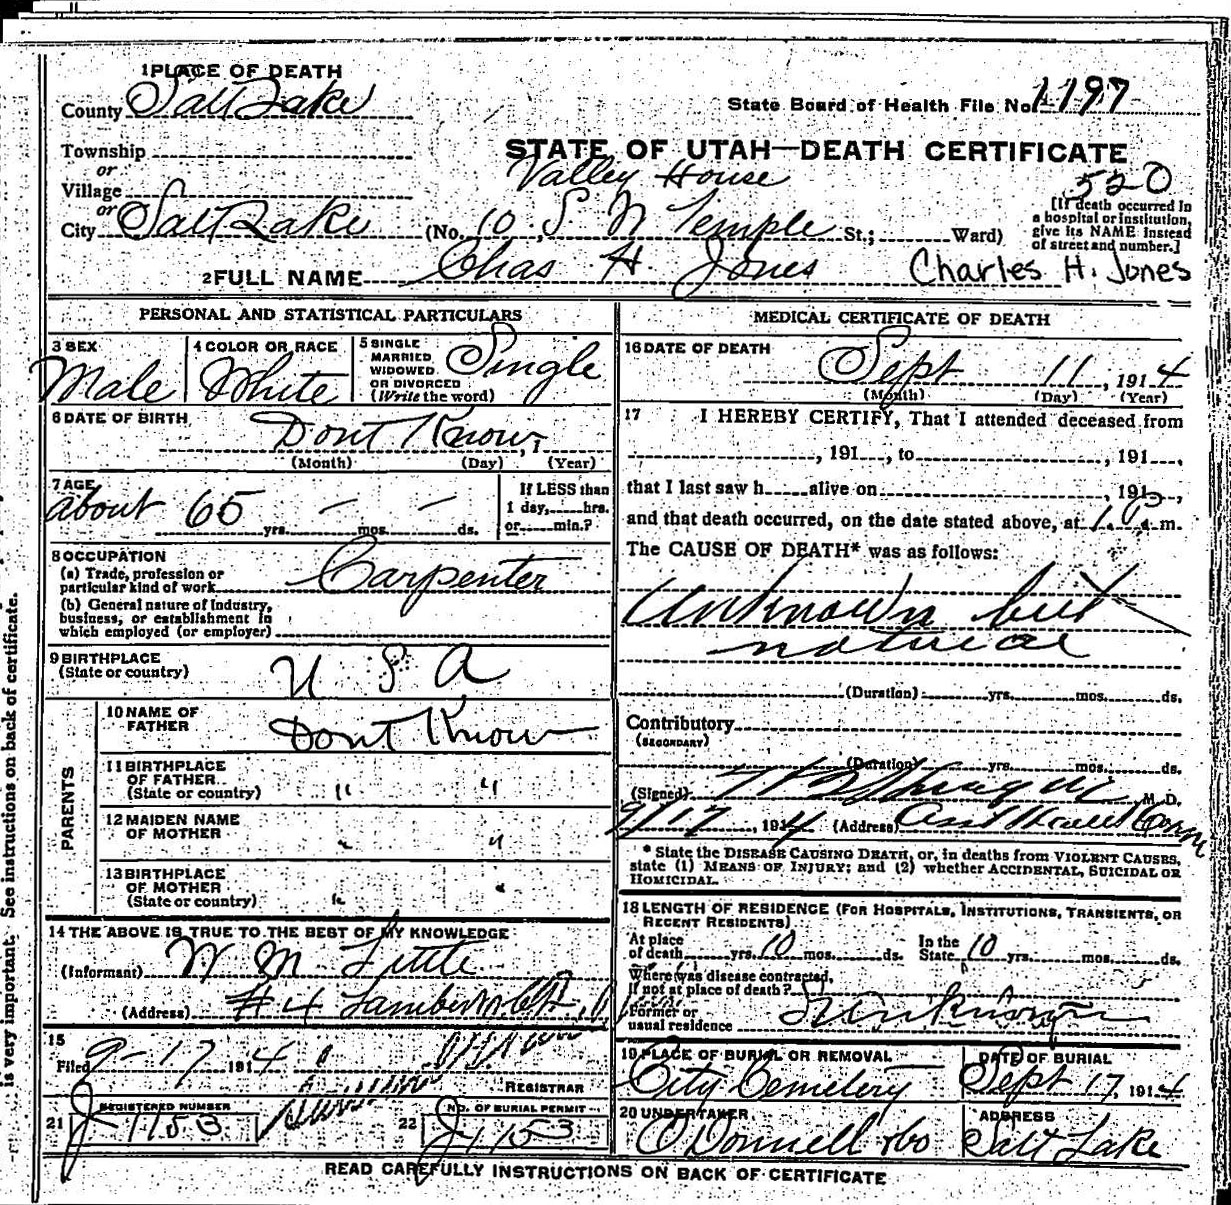 1 PLACE OF DEATH
County Salt Lake
State Board of Health File No. 1197
Township
or
Village
or
City Salt Lake
STATE OF UTAH—DEATH CERTIFICATE
Valley House
520
(No. 10, S N Temple St.; Ward)
[If death occurred in
a hospital or institution,
give its NAME instead
of street and number.]
2 FULL NAME Chas H. Jones Charles H. Jones
PERSONAL AND STATISTICAL PARTICULARS
3 SEX
Male
4 COLOR OR RACE
White
5 SINGLE
MARRIED
WIDOWED
OR DIVORCED
(Write the word)
Single
6 DATE OF BIRTH
Dont Know, 1
(Month) (Day) (Year)
7 AGE
about 65 yrs. — mos. — ds.
If LESS than
1 day, hrs.
or min.?
8 OCCUPATION
(a) Trade, profession or
particular kind of work Carpenter
(b) General nature of Industry,
business, or establishment in
which employed (or employer)
9 BIRTHPLACE
(State or country) U S A
PARENTS
10 NAME OF
FATHER Dont Know
11 BIRTHPLACE
OF FATHER
(State or country) " "
12 MAIDEN NAME
OF MOTHER " "
13 BIRTHPLACE
OF MOTHER
(State or country) " "
14 THE ABOVE IS TRUE TO THE BEST OF MY KNOWLEDGE
(Informant) W M Little
(Address) #4
15
Filed 9-17 1914
REGISTRAR
21 REGISTERED NUMBER
J-1153
22 NO. OF BURIAL PERMIT
J1153
MEDICAL CERTIFICATE OF DEATH
16 DATE OF DEATH
Sept 11, 1914
(Month) (Day) (Year)
17 I HEREBY CERTIFY, That I attended deceased from
, 191 , to , 191 ,
that I last saw h alive on , 191 ,
and that death occurred, on the date stated above, at m.
The CAUSE OF DEATH* was as follows:
Unknown but
natural
(Duration) yrs. mos. ds.
Contributory
(SECONDARY)
(Duration) yrs. mos. ds.
(Signed) M. D.
9/17, 1914 (Address) Asst Health Comm
* State the DISEASE CAUSING DEATH, or, in deaths from VIOLENT CAUSES,
state (1) MEANS OF INJURY; and (2) whether ACCIDENTAL, SUICIDAL OR
HOMICIDAL.
18 LENGTH OF RESIDENCE (FOR HOSPITALS, INSTITUTIONS, TRANSIENTS, OR
RECENT RESIDENTS).
At place
of death yrs. 10 mos. ds.
In the
State 10 yrs. mos. ds.
Where was disease contracted,
if not at place of death?
Former or
usual residence
19 PLACE OF BURIAL OR REMOVAL
City Cemetery
DATE OF BURIAL
Sept 17, 1914
20 UNDERTAKER
O'Donnell & Co
ADDRESS
Salt Lake
READ CAREFULLY INSTRUCTIONS ON BACK OF CERTIFICATE
is very important. See instructions on back of certificate.